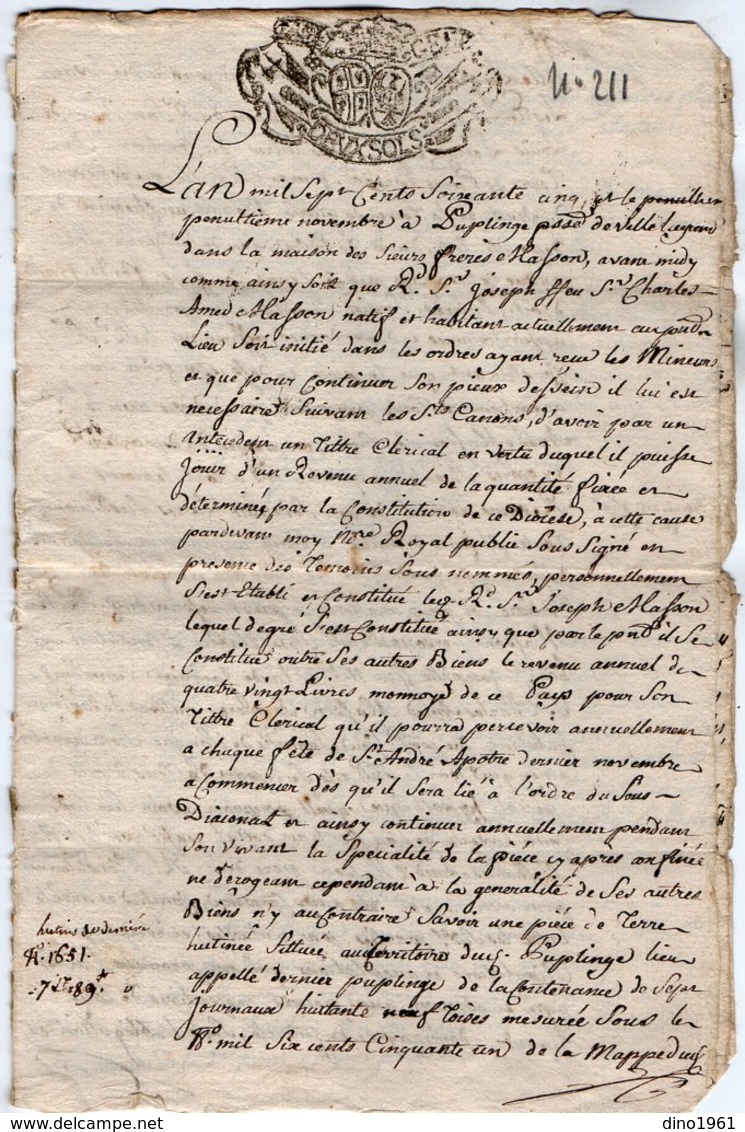 N.o 211
DEVX SOLS
L'an mil Sept Cents Soixante cinq, et le
penultieme novembre à Puplinge pssê de Ville la grand
dans la maison des Sieurs freres Masson, avant midy
comme ainsy soit que R.d S.r joseph ffeu S.r Charles
Amed Masson natif et habitant actuellement au
Lieu Soit initié dans les ordres ayant reçu les Mineurs
et que pour Continuer Son pieux dessein il lui est
necessaire Suivant les S.ts Canons, d'avoir par un
antécedent un Tittre Clerical en vertu duquel il puisse
jouir d'un Revenu annuel de la quantité fixée et
déterminée par la Constitution de ce Diocèse, à cette cause
pardevant moy No.re Royal public Sous Signé en
presence des Temoins Sous nommés, personnellement
S'est Etabli et Constitué led. R.d S.r Joseph Masson
lequel de gré S'est Constitué ainsy que par le pnt il Se
Constitue outre Ses autres Biens le revenu annuel de
quatre vingt Livres monnoye de ce Pays pour Son
Tittre Clerical qu'il pourra percevoir annuellement
a chaque fête de S.t André Apotre dernier novembre
a Commencer dès qu'il Sera lié à l'ordre du Sous-
Diaconat et ainsy continuer annuellement pendant
Son vivant la Specialité de la piéce cy apres
ne derogeant cependant à la generalité de Ses autres
Biens n'y au Contraire Savoir une piéce de Terre
hutinée Sittuée au Territoire dud. Puplinge lieu
appellé dernier puplinge de la Contenance de Sept
journaux huitante neuf Toises mesurée Sous le
N.o mil Six cents Cinquante un de la Mappe dud.
N.o 1651.
7 J.x 89 t
dino1961